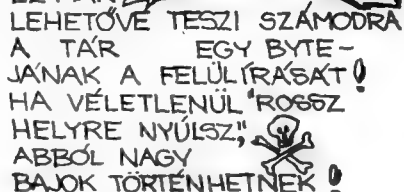 LEHETŐVÉ TESZI SZÁMODRA
A TÁR EGY BYTE-
JÁNAK A FELÜLÍRÁSÁT!
HA VÉLETLENÜL "ROSSZ
HELYRE NYÚLSZ",
ABBÓL NAGY
BAJOK TÖRTÉNHETNEK!